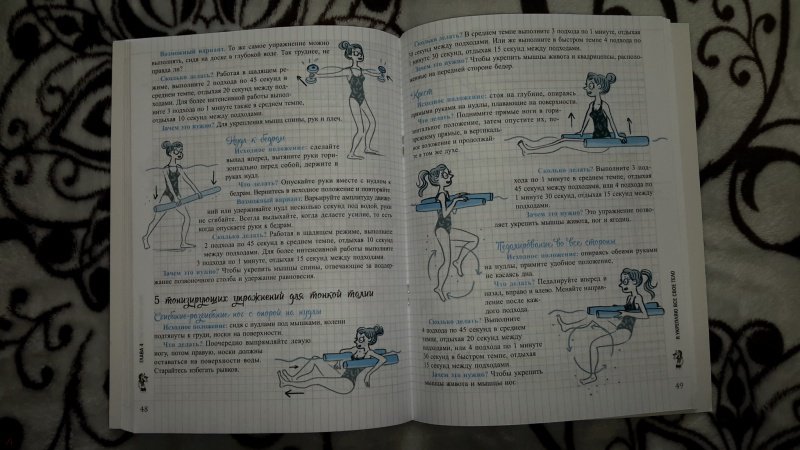 Возможный вариант. То же самое упражнение можно
выполнять, сидя на доске в глубокой воде. Так труднее, не
правда ли?
Сколько делать? Работая в щадящем ре-
жиме, выполните 2 подхода по 45 секунд в
среднем темпе, отдыхая 20 секунд между под-
ходами. Для более интенсивной работы выпол-
ните 3 подхода по 1 минуте также в среднем темпе,
отдыхая 10 секунд между подходами.
Зачем это нужно? Для укрепления мышц спины, рук и плеч.
Нудл к бедрам
Исходное положение: сделайте
выпад вперед, вытяните руки гори-
зонтально перед собой, держите в
руках нудл.
Что делать? Опускайте руки вместе с нудлом к
бедрам. Вернитесь в исходное положение и повторяйте.
Возможный вариант: Варьируйте амплитуду движе-
ний или удерживайте нудл несколько секунд под водой, руки
не сгибайте. Всегда выдыхайте, когда делаете усилие, то есть
когда опускаете руки к бедрам.
Сколько делать? Работая в щадящем режиме, выполните
2 подхода по 45 секунд в среднем темпе, отдыхая 10 секунд
между подходами. Для более интенсивной работы выполните
3 подхода по 1 минуте, отдыхая 15 секунд между подходами.
Зачем это нужно? Чтобы укрепить мышцы спины, отвечающие за поддер-
жание позвоночного столба и удержание равновесия.
5 тонизирующих упражнений для тонкой талии
Сгибание-разгибание ног с опорой на нудлы
Исходное положение: сидя с нудлами под мышками, колени
подтянуты к груди, носки на поверхности.
Что делать? Поочередно выпрямляйте левую
ногу, потом правую, носки должны
оставаться на поверхности воды.
Старайтесь избегать рывков.
ГЛАВА 4
48
Сколько делать? В среднем темпе выполните 3 подхода по 1 минуте, отдыхая
45 секунд между подходами. Или же выполните в быстром темпе 4 подхода по
1 минуте 30 секунд, отдыхая 15 секунд между подходами.
Зачем это нужно? Чтобы укрепить мышцы живота и квадрицепсы, располо-
женные на передней стороне бедер.
Крест
Исходное положение: стоя на глубине, опираясь
прямыми руками на нудлы, плавающие на поверхности.
Что делать? Поднимите прямые ноги в гори-
зонтальное положение, затем опустите их, по-
прежнему прямые, в вертикаль-
ное положение и продолжай-
те в том же духе.
Сколько делать? Выполните 3 под-
хода по 1 минуте в среднем темпе, отдыхая
45 секунд между подходами, или 4 подхода по
1 минуте 30 секунд, отдыхая 15 секунд между
подходами.
Зачем это нужно? Это упражнение позво-
ляет укрепить мышцы живота, ног и ягодиц.
Педалирование во все стороны
Исходное положение: опираясь обеими руками
на нудлы, примите удобное положение,
не касаясь дна.
Что делать? Педалируйте вперед и
назад, вправо и влево. Меняйте направ-
ление после каж-
дого подхода.
Сколько делать? Выполните
4 подхода по 45 секунд в среднем
темпе, отдыхая 20 секунд между
подходами, или 4 подхода по 1 минуте
30 секунд в быстром темпе, отдыхая
15 секунд между подходами.
Зачем это нужно? Чтобы укрепить
мышцы живота и мышцы ног.
Я УКРЕПЛЯЮ ВСЕ СВОЕ ТЕЛО
49